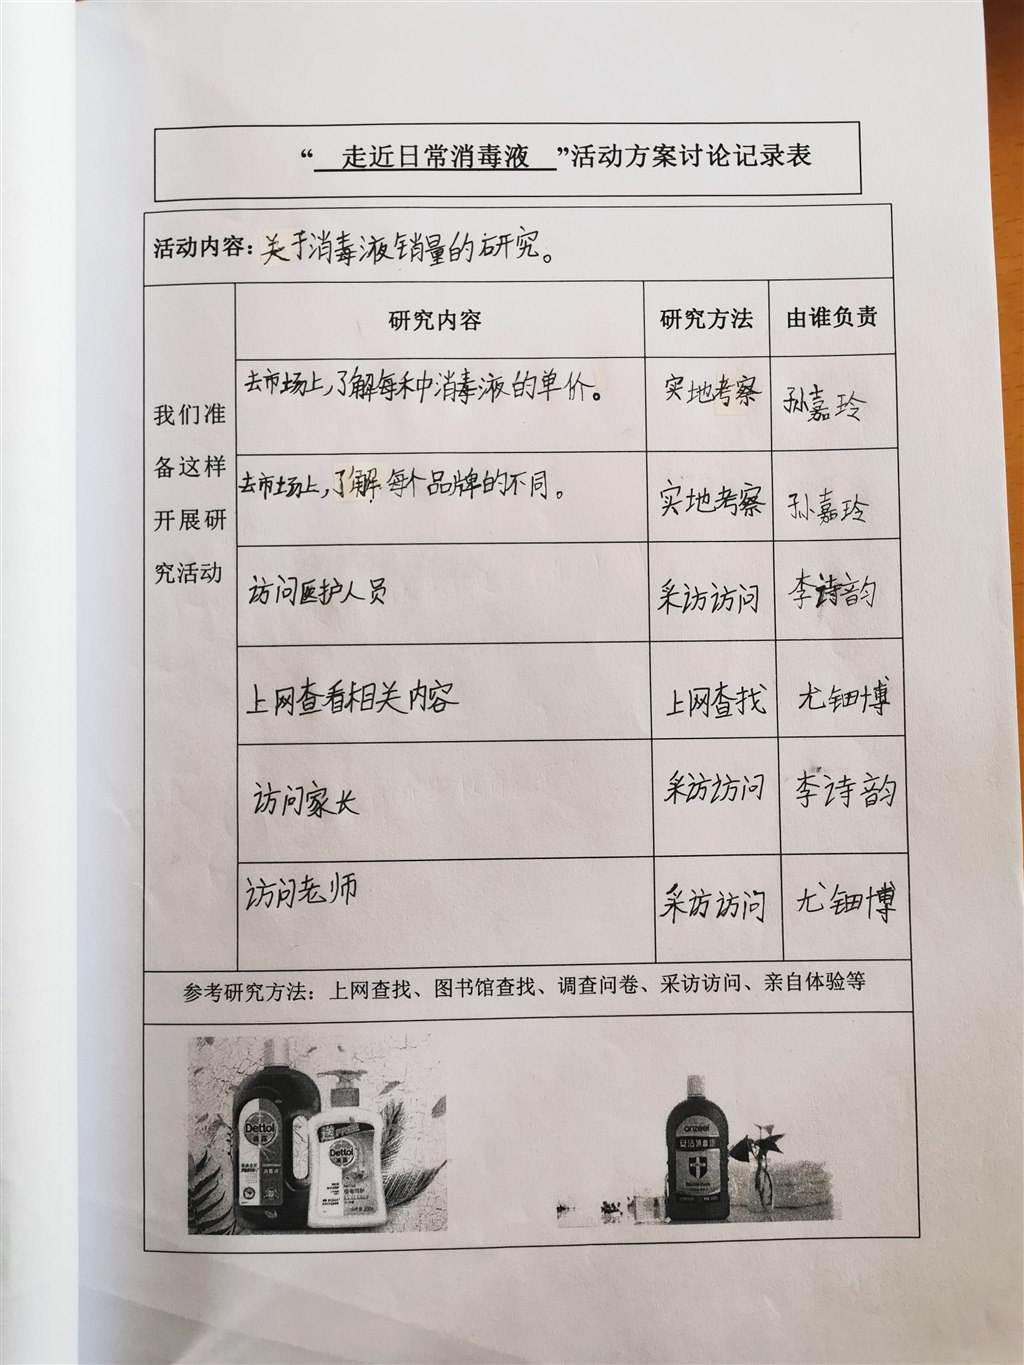 “ 走近日常消毒液 ”活动方案讨论记录表
活动内容：关于消毒液销量的研究。
研究内容 研究方法 由谁负责
我们准
备这样
开展研
究活动
去市场上,了解每种消毒液的单价。 实地考察 孙嘉玲
去市场上,了解每个品牌的不同。 实地考察 孙嘉玲
访问医护人员 采访访问 李诗韵
上网查看相关内容 上网查找 尤钿博
访问家长 采访访问 李诗韵
访问老师 采访访问 尤钿博
参考研究方法：上网查找、图书馆查找、调查问卷、采访访问、亲自体验等
Dettol
Dettol
anzeel